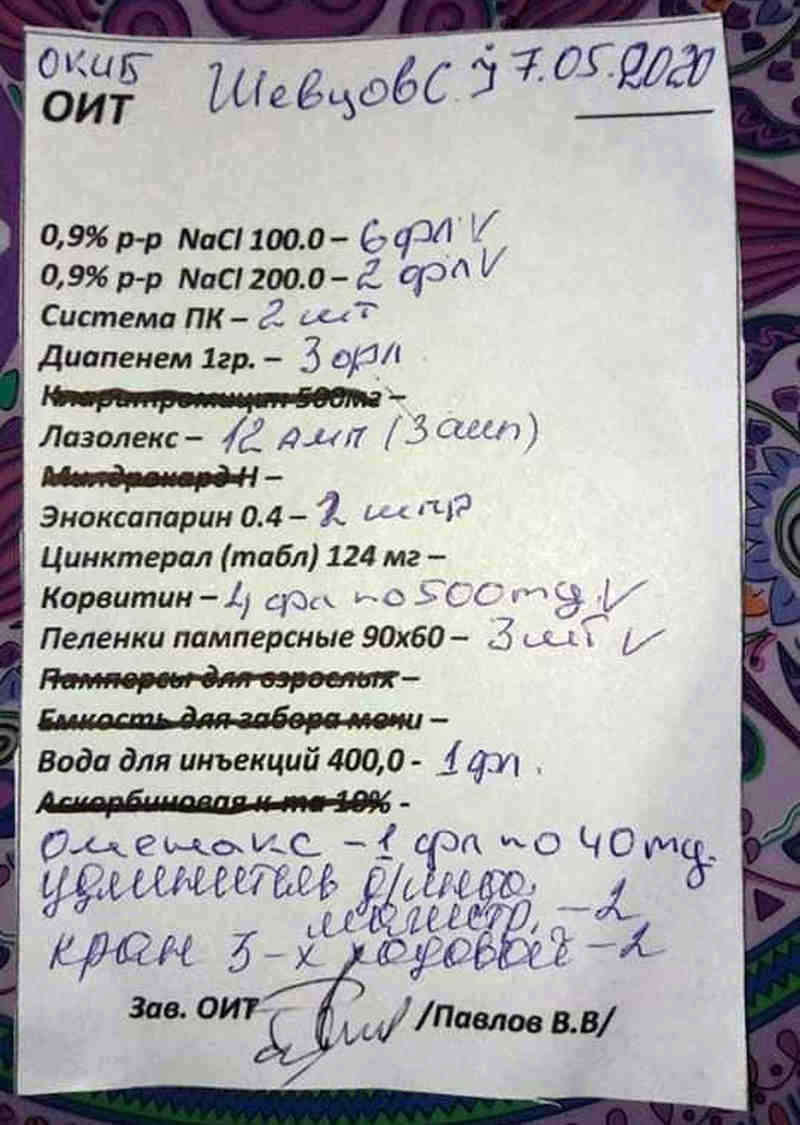 ОКИБ Шевцов С. 17.05.2020
ОИТ
0,9% р-р NaCl 100.0 – 6 фл V
0,9% р-р NaCl 200.0 – 2 фл V
Система ПК – 2 шт
Диапенем 1гр. – 3 фл
Кларитромицин 500мг –
Лазолекс – 12 амп (3 амп)
Милдрокард-Н –
Эноксапарин 0.4 – 2 шпр
Цинктерал (табл) 124 мг –
Корвитин – 4 фл по 500mg V
Пеленки памперсные 90х60 – 3 шт V
Памперсы для взрослых –
Емкость для забора мочи –
Вода для инъекций 400,0 - 1 фл.
Аскорбиновая к-та 10% -
Омемакс – 1 фл по 40mg.
удлинитель д/инфо.
магистр. – 2
кран 3-х ходовой – 2
Зав. ОИТ /Павлов В.В/